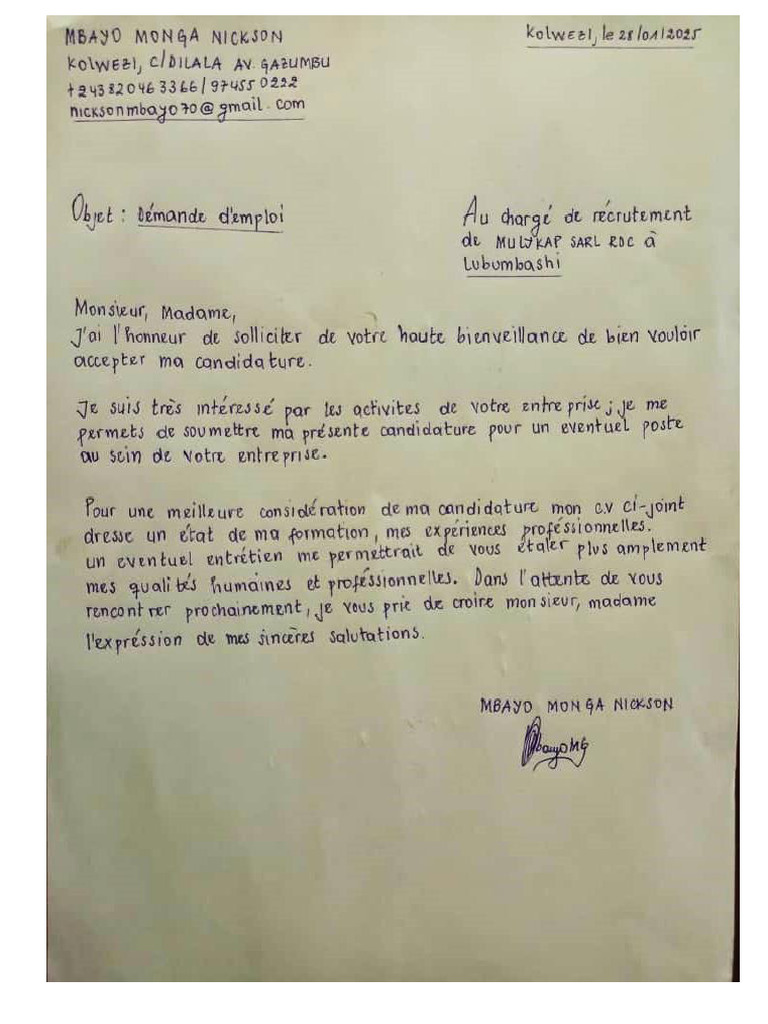 MBAYO MONGA NICKSON
Kolwezi, le 28/01/2025
KOLWEZI, C/DILALA AV. GAZUMBU
+243820463366/974550222
nicksonmbayo70@gmail.com
Objet : Démande d'emploi
Au chargé de récrutement
de MULYKAP SARL RDC à
Lubumbashi
Monsieur, Madame,
J'ai l'honneur de solliciter de votre haute bienveillance de bien vouloir
accepter ma candidature.
Je suis très intéressé par les activites de votre entreprise ; je me
permets de soumettre ma présente candidature pour un eventuel poste
au sein de votre entreprise.
Pour une meilleure considération de ma candidature mon c.v ci-joint
dresse un état de ma formation, mes expériences proféssionnelles.
un eventuel entrétien me permettrait de vous étaler plus amplement
mes qualités humaines et proféssionnelles. Dans l'attente de vous
rencontrer prochainement, je vous prie de croire monsieur, madame
l'expréssion de mes sincères salutations.
MBAYO MONGA NICKSON